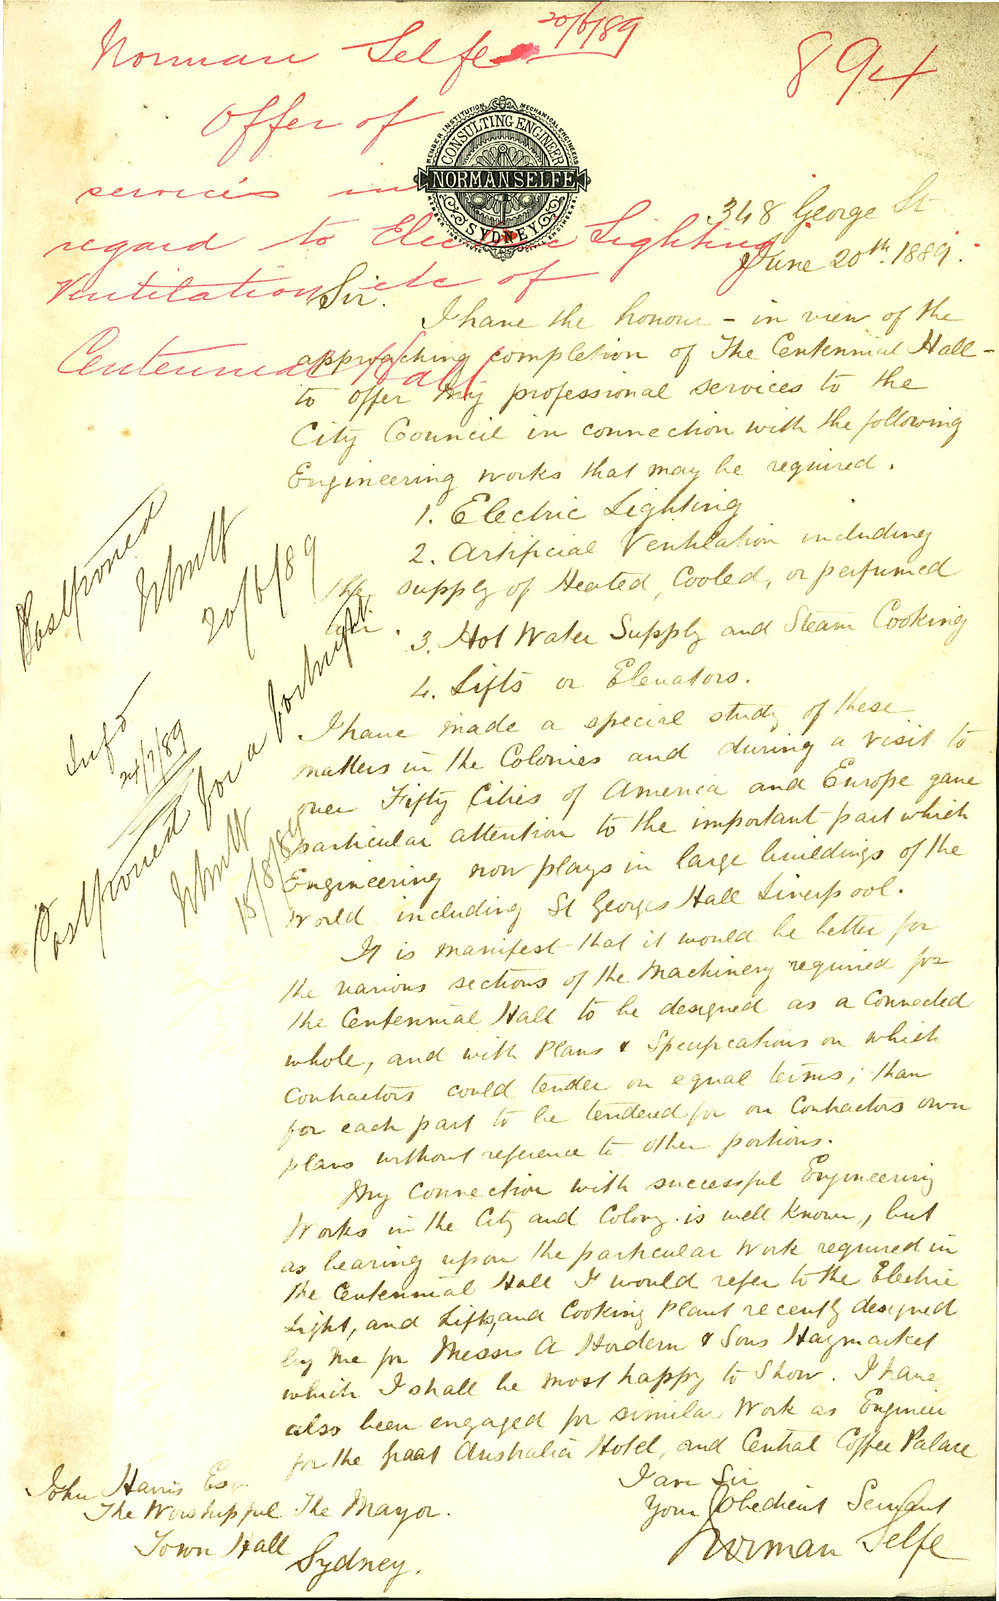 Norman Selfe 20/6/89
894
Offer of
services in
regard to Electric Lighting
Ventilation etc of
Centennial Hall
MEMBER INSTITUTION MECHANICAL ENGINEERS
CONSULTING ENGINEER
NORMAN SELFE
SYDNEY
348 George St
June 20th. 1889.
Sir.
I have the honour - in view of the
approaching completion of The Centennial Hall -
to offer my professional services to the
City Council in connection with the following
Engineering works that may be required.
1. Electric Lighting
2. Artificial Ventilation including
the supply of Heated, Cooled, or perfumed
air.
3. Hot Water Supply and Steam Cooking
4. Lifts or Elevators.
I have made a special study of these
matters in the Colonies and during a visit to
over Fifty Cities of America and Europe gave
particular attention to the important part which
Engineering now plays in large buildings of the
World including St Georges Hall Liverpool.
It is manifest that it would be better for
the various sections of the Machinery required for
the Centennial Hall to be designed as a Connected
whole, and with Plans & Specifications on which
Contractors could tender on equal terms; than
for each part to be tendered for on Contractors own
plans without reference to other portions.
My Connection with successful Engineering
Works in the City and Colony is well known, but
as bearing upon the particular Work required in
the Centennial Hall I would refer to the Electric
Light, and Lifts, and Cooking Plant recently designed
by me for Messrs A Hordern & Sons Haymarket
which I shall be most happy to Show. I have
also been engaged for similar Work as Engineer
for the Australia Hotel, and Central Coffee Palace
I am Sir
Your Obedient Servant
Norman Selfe
John Harris Esqr
The Worshipful The Mayor.
Town Hall
Sydney.
Postponed
20/6/89
24/7/89
Postponed for a fortnight